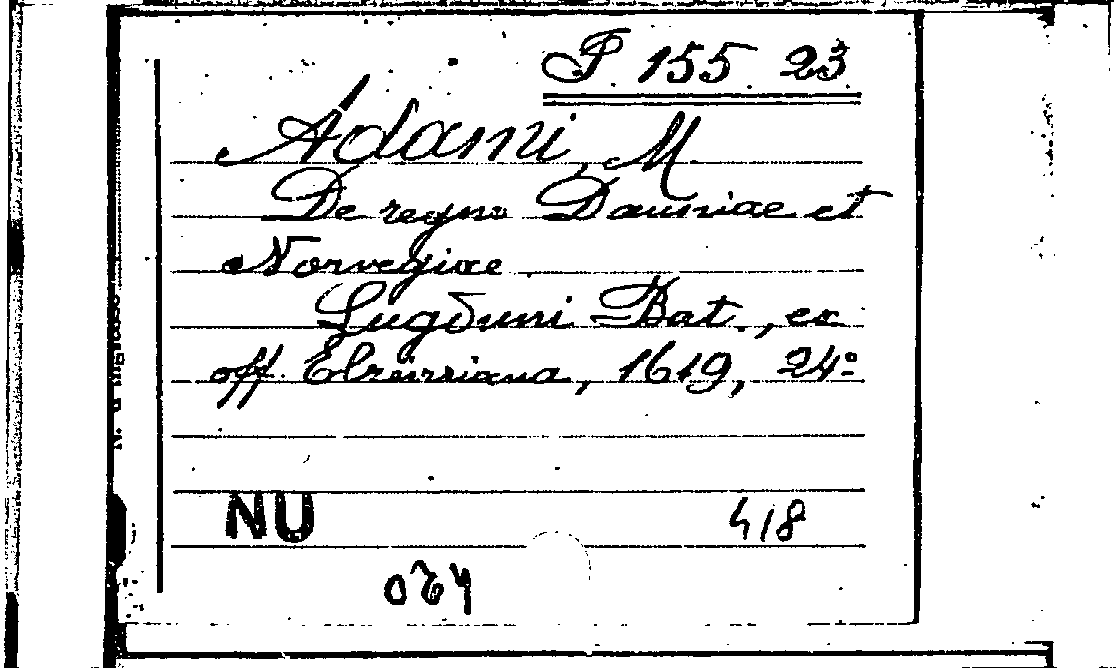 P. 155 23
Adami, M
De regno Dauniae et
Norvegiae
Lugduni Bat., ex
off. Elzeiriana, 1619, 24º
N. d'ingresso
NU 418